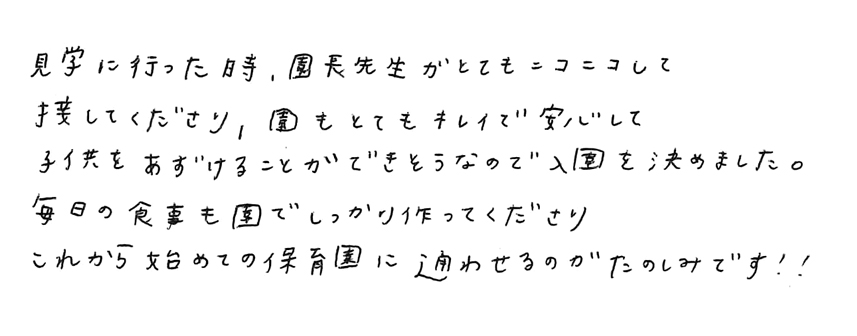 見学に行った時、園長先生がとてもニコニコして
接してくださり、園もとてもキレイで安心して
子供をあずけることができそうなので入園を決めました。
毎日の食事も園でしっかり作ってくださり
これから始めての保育園に通わせるのがたのしみです!!